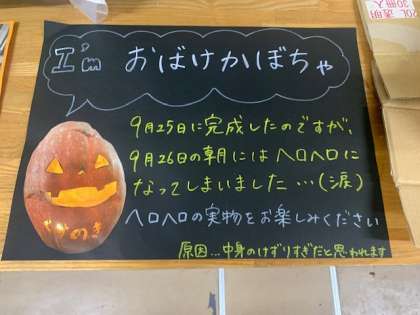 20L 透明
30冊入
I'm おばけかぼちゃ
9月25日に完成したのですが、
9月26日の朝にはヘロヘロに
なってしまいました…(涙)
ヘロヘロの実物をお楽しみください
原因…中身のけずりすぎだと思われます